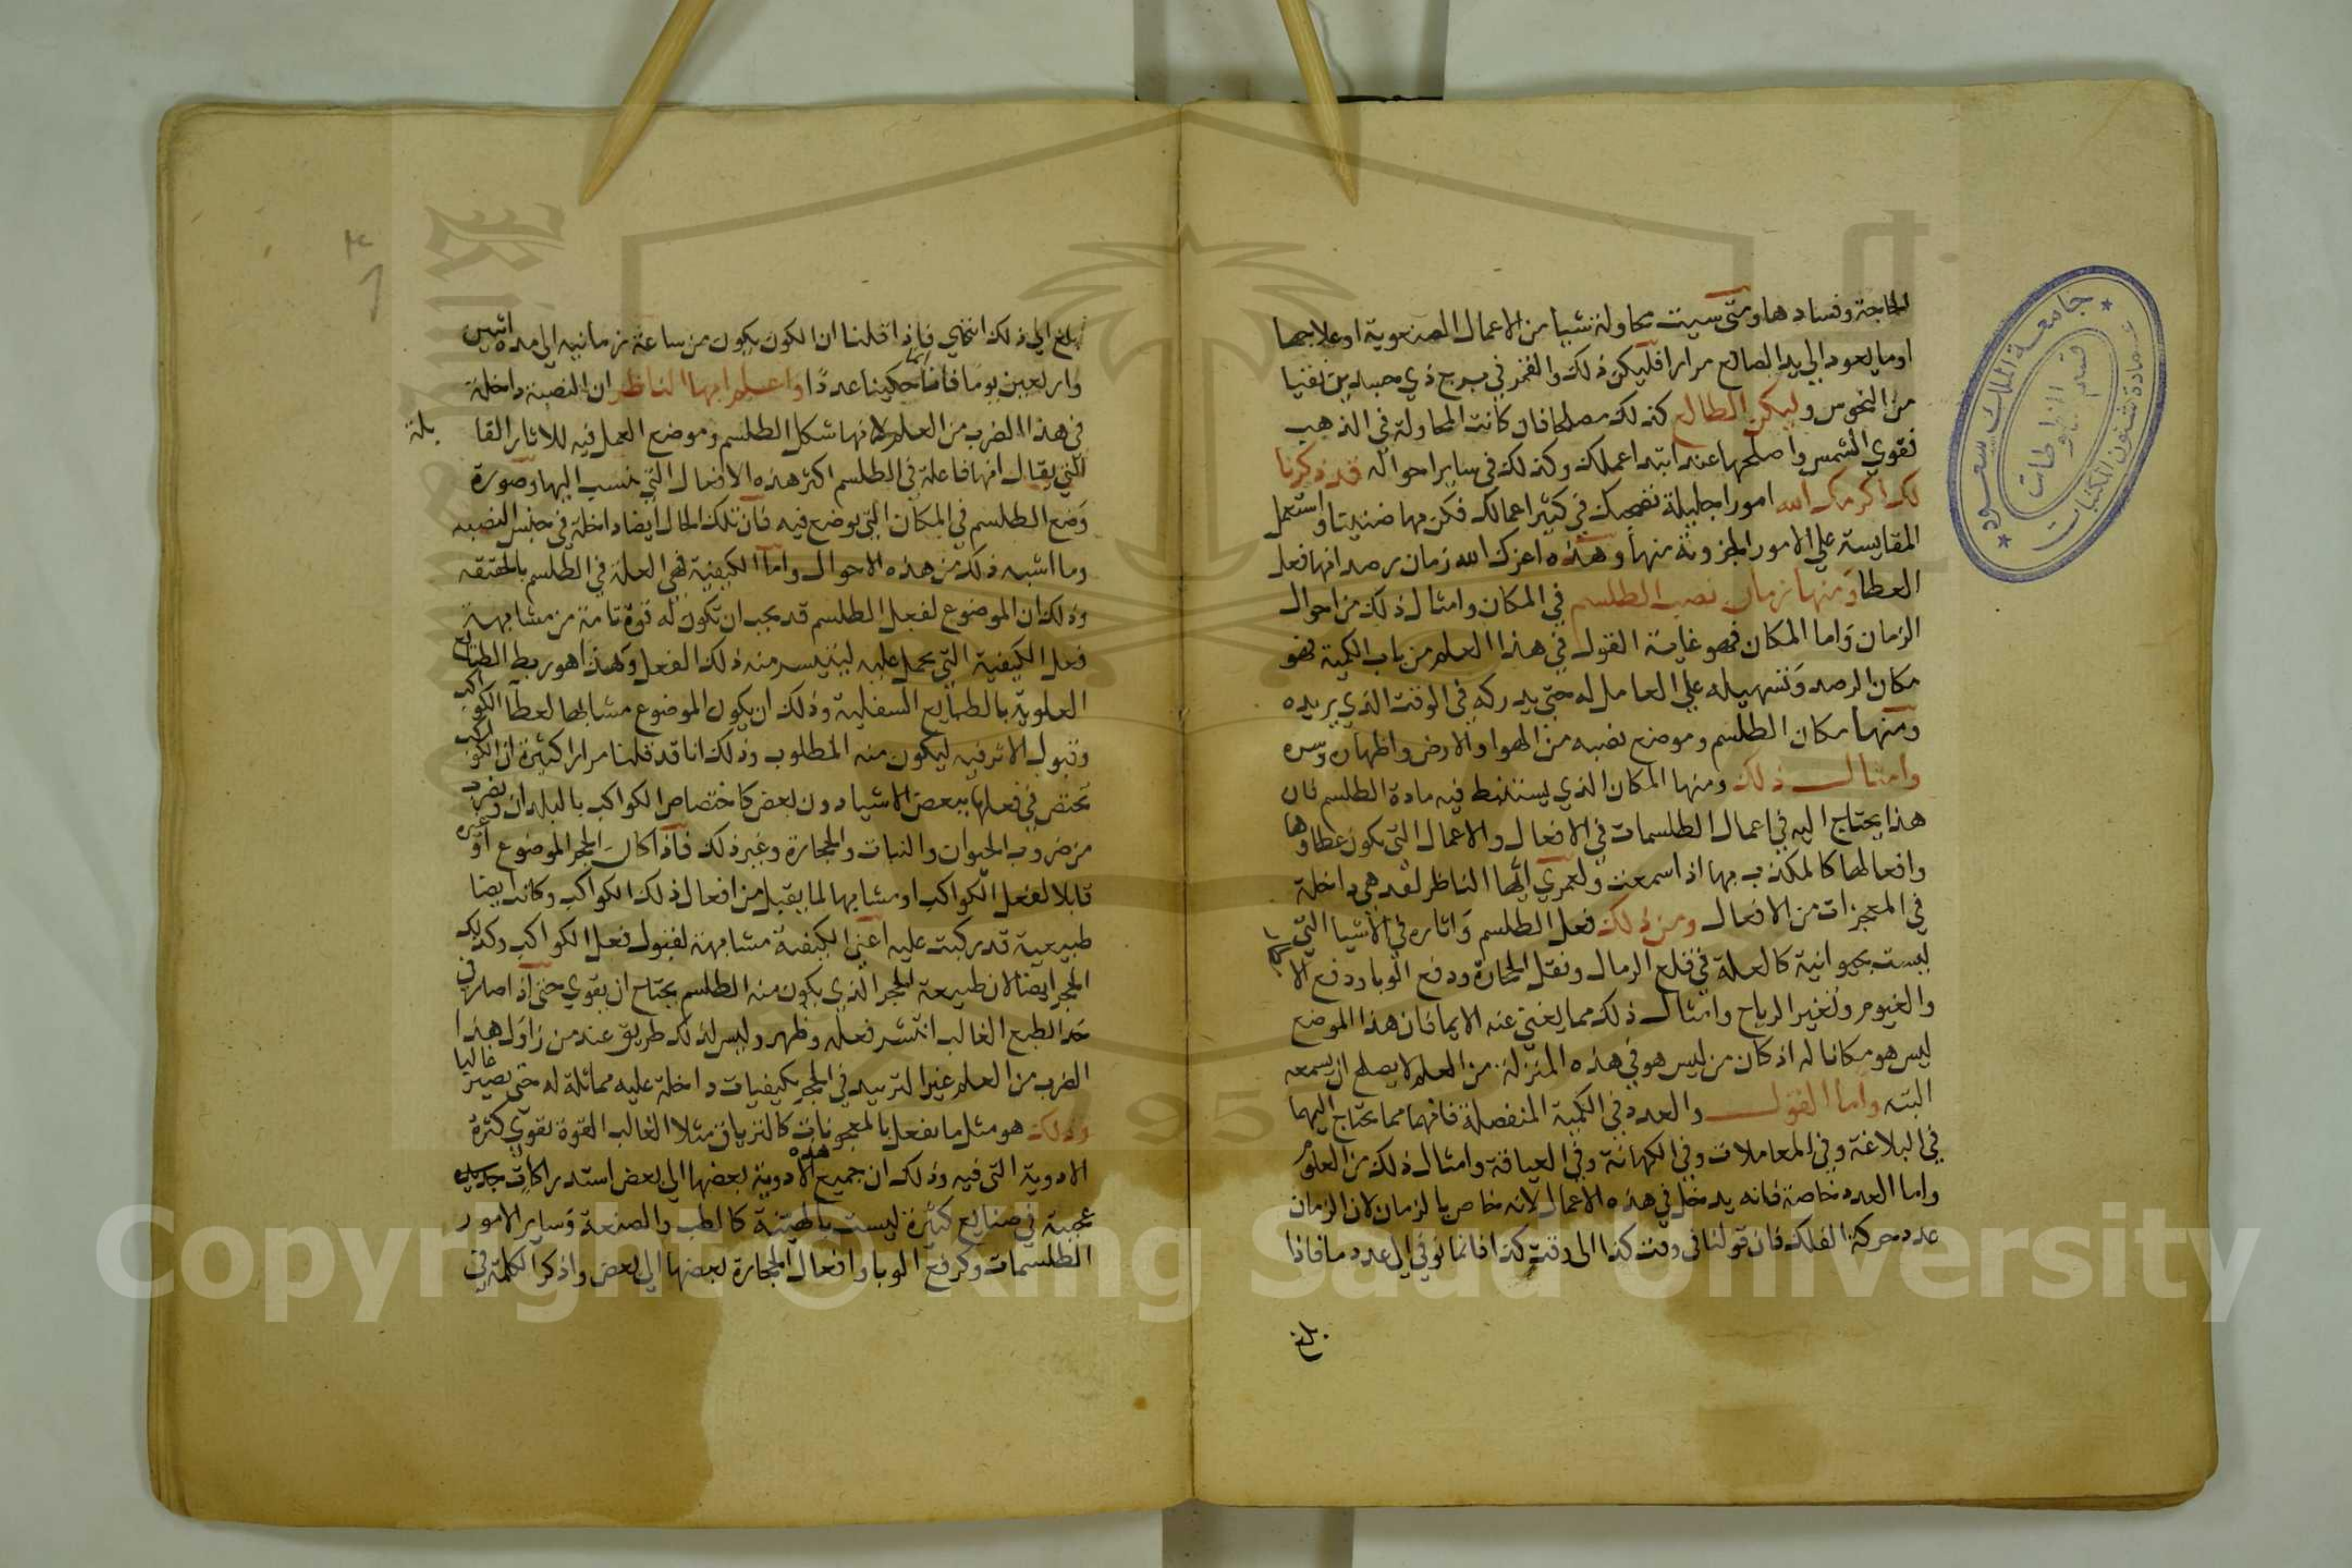 الحاجة وفسادها ومتى سيت محاولة شيا من الاعمال الصنعوية او علاجها
او ما يعود الي يد الصانع مرارا فليكن ذلك والقمر في برج ذي جسدين نقيا
من النحوس وليكن الطالع كذلك مصلحا فان كانت المحاولة في الذهب
فقوي الشمس واصلحها عند ابتدا عملك وكذلك في ساير احواله قد ذكرنا
لك اكرمك الله امورا جليلة تفعهك في كثير اعمالك فكن بها ضنينا واستعمل
المقايسة علي الامور المخزونة منها وهذه اعزك الله زمان رصد انها فعل
العطا ومنها زمان نصب الطلسم في المكان وامثال ذلك من احوال
الزمان واما المكان فهو غاية القول في هذا العلم من باب الكمية فهو
مكان الرصد وتسهيله علي العامل له حتي يدركه في الوقت الذي يريده
ومنها مكان الطلسم وموضع نصبه من الهوا والارض واظهاره وسره
وامثال ذلك ومنها المكان الذي يستنبط فيه مادة الطلسم فان
هذا يحتاج اليه في اعمال الطلسمات في الافعال والاعمال التي يكون عطاوها
وافعالها كالمكذب بها اذا سمعت ولعمري ايها الناظر لقد هي داخلة
في المعجزات من الافعال ومن ذلك فعل الطلسم واثاره في الاشيا التي
ليست بحيوانية كالعملة في قلع الرمال ونقل الحجارة ودفع الوبا ودفع الا
والغيوم وتغير الرياح وامثال ذلك مما يغني عنه الايما فان هذا الموضع
ليس هو مكانا له اذ كان من ليس هو في هذه المنزلة من العلم لا يصلح ان يسمعه
البته واما القول والعدد في الكمية المنفصلة فانهما مما يحتاج اليهما
في البلاغة وفي المعاملات وفي الكهانة وفي العيافة وامثال ذلك من العلوم
واما العدد خاصة فانه يدخل في هذه الاعمال لانه خاص بالزمان لان الزمان
عدد حركة الفلك فان قولنا في وقت كذا الى وقت كذا فانما نوفي الي عدد ما فاذا
بلغ
بلغ الي ذلك انتهي فاذا قلنا ان الكون يكون من ساعة زمانيه الي مده اثنين
واربعين يوما فانما حكينا عددا واعلم ايها الناظر ان النصبة داخلة
في هذا الضرب من العلم لانها شكل الطلسم وموضع العمل فيه للاثار القا
بلة
التي يقال انها فاعلة في الطلسم اكثر هذه الافعال التي ننسب اليها وصورة
وضع الطلسم في المكان التي يوضع فيه فان تلك الحال ايضا داخلة في جنس النصبه
وما اشبه ذلك من هذه الاحوال واما الكيفية فهي العلة في الطلسم بالحقيقه
وذلك ان الموضوع لفعل الطلسم قد يجب ان تكون له قوة تامة من مشابهة
فعل الكيفية التي يحمل عليه ليتيسر منه ذلك الفعل وهذا هو ربط الطبائع
العلوية بالطبايع السفلية وذلك ان يكون الموضوع مشابها لعطا الكواكب
وقبول الاثر فيه ليكون منه المطلوب وذلك انا قد قلنا مرارا كثيرة ان الكواكب
تختص في فعلها ببعض الاشيا دون بعض كاختصاص الكواكب بالبلدان وبضرب
من ضروب الحيوان والنبات والحجارة وغير ذلك فاذا كان الحجر الموضوع او غيره
قابلا لفعل الكواكب او مشابها لما يقبل من افعال ذلك الكواكب وكانت ايضا
طبيعية قد ركبت عليه اعني الكيفية مشابهة لقبول فعل الكواكب وكذلك
الحجر ايضا لان طبيعة الحجر الذي يكون منه الطلسم يحتاج ان يقوي حتى اذا صار في
حد الطبع الغالب انتشر فعله وظهر وليس لذلك طريق عند من زاول هذا
الضرب من العلم غير التزييد في الحجر بكيفيات داخلة عليه مماثلة له حتى يصير غالبا
وذلك هو مثل ما نفعل بالمعجونات كالترياق مثلا الغالب القوة لقوي كثرة
الادوية التي فيه وذلك ان جميع هذه الادوية بعضها الي بعض استدراكات جديده
عجيبة في صنايع كثيرة ليست بالهينة كالطب والصنعة وساير الامور
الطلسمات وكرفع الوبا وافعال الحجارة بعضها الي بعض واذكر الكلمة في
جامعة الملك سعود
عمادة شئون المكتبات
قسم المخطوطات
Copyright © King Saud University
195